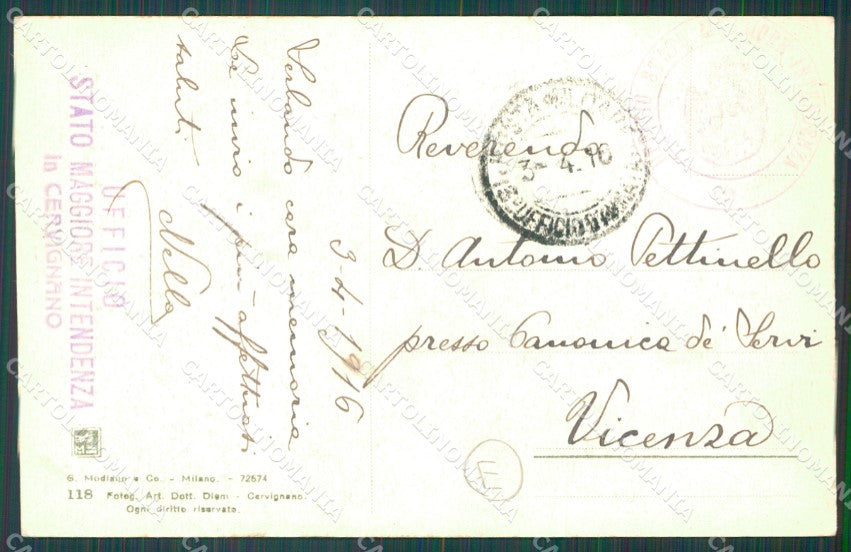 3-4-1916
Serbando cara memoria
Le invio i più affettuosi
saluti
Nella
UFFICIO
STATO MAGGIORE INTENDENZA
in CERVIGNANO
G. Modiano e Co. - Milano. - 72674
118 Foteg. Art. Dott. Diem - Cervignano.
Ogni diritto riservato.
POSTA MILITARE
3- 4. 16
Reverendo
D. Antonio Pettinello
presso Canonica de' Servi
Vicenza
CARTOLINOMANIA